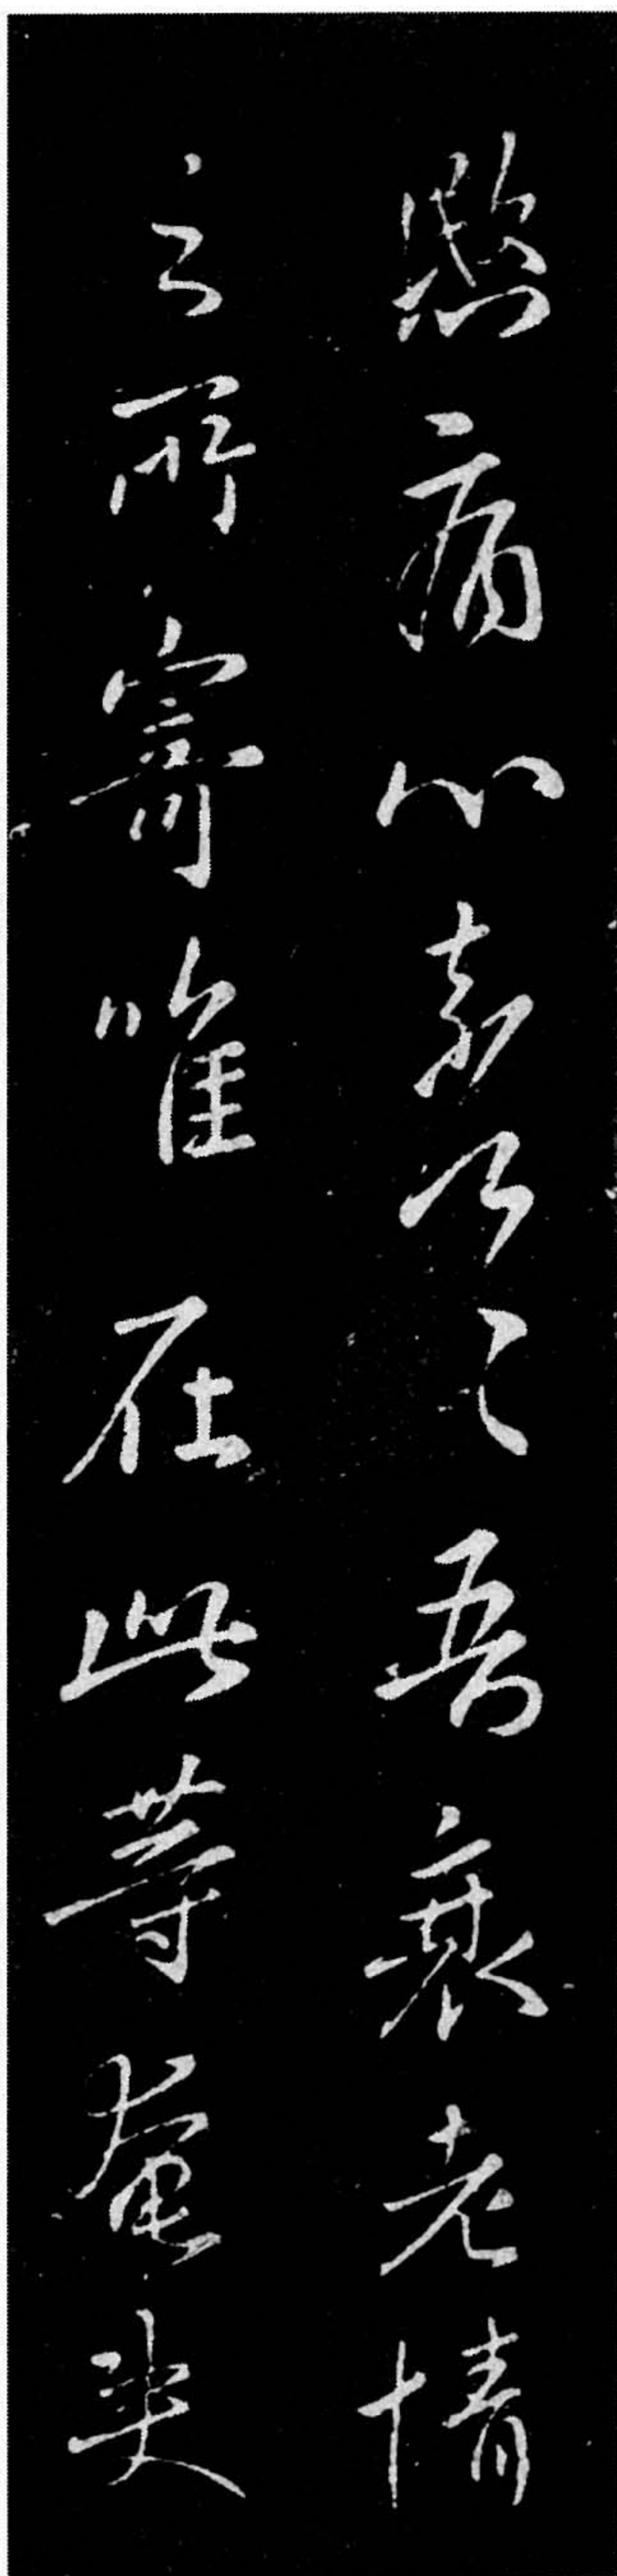 愍痛心奈何々々吾衰老情
之所寄唯在此等奄失